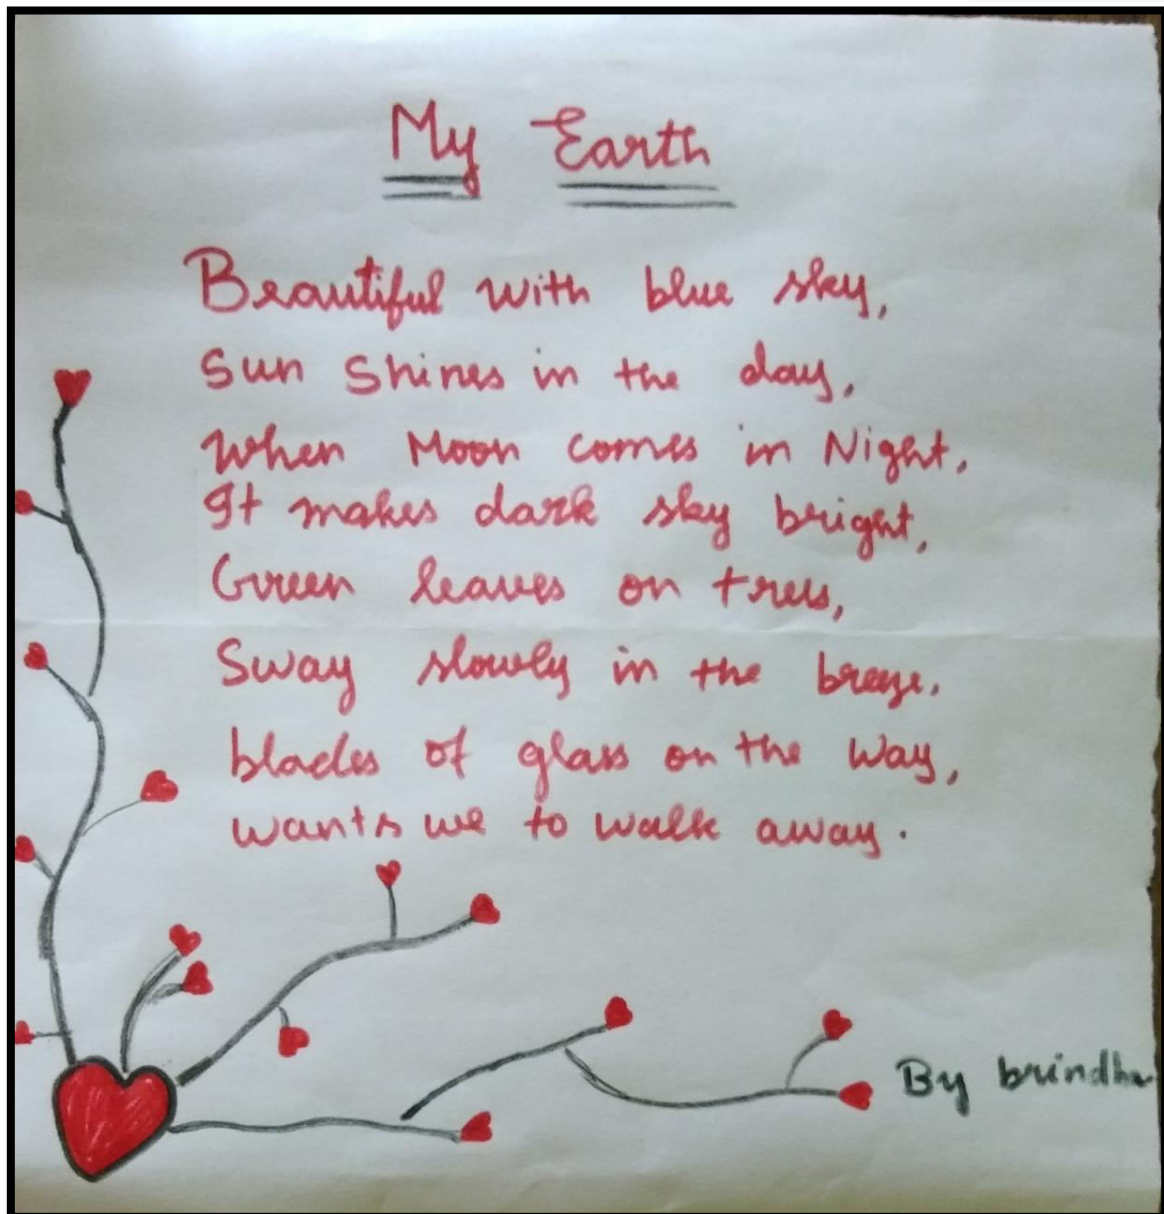 My Earth
Beautiful with blue sky,
Sun shines in the day,
When Moon comes in Night,
It makes dark sky bright,
Green leaves on trees,
Sway slowly in the breeze.
blades of glass on the way,
wants we to walk away.
By brindha